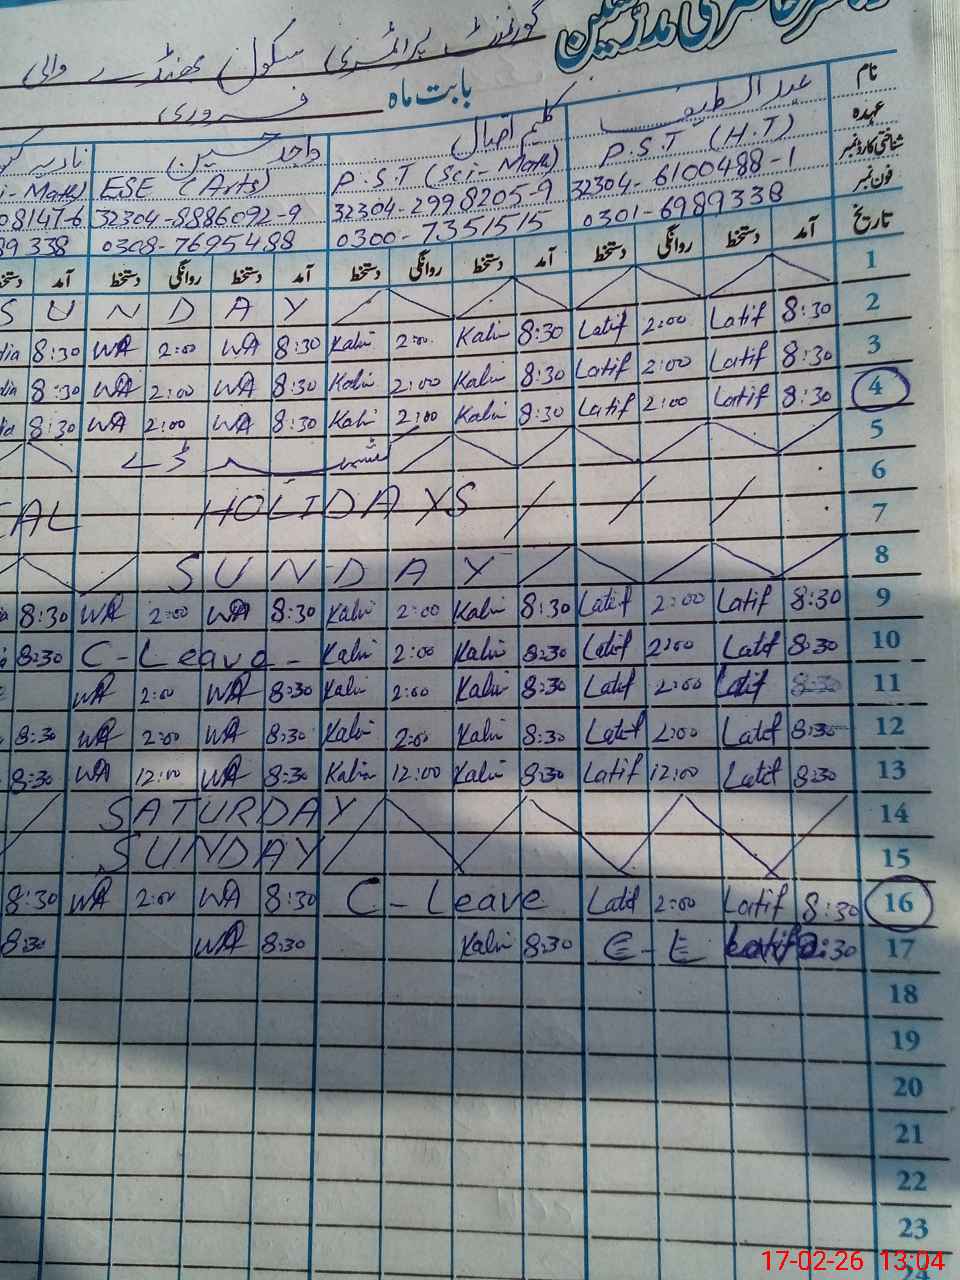 گورنمنٹ پرائمری سکول بھنڈے والی
بابت ماہ فروری
نام عبدالطیف کلیم اقبال واجد حسین
عہدہ P.S.T (H.T) P.S.T (Sci-Math) ESE (Arts) i-Math)
شناختی کارڈ نمبر 32304-6100488-1 32304-2998205-9 32304-8886092-9 08147-6
فون نمبر 0301-6989338 0300-7351515 0308-7695488 89338
تاریخ آمد دستخط روانگی دستخط آمد دستخط روانگی دستخط آمد دستخط روانگی دستخط آمد دستخط
S U N D A Y 1
dia 8:30 WA 2:00 WA 8:30 Kalim 2:00 Kalim 8:30 Latif 2:00 Latif 8:30 2
dia 8:30 WA 2:00 WA 8:30 Kalim 2:00 Kalim 8:30 Latif 2:00 Latif 8:30 3
dia 8:30 WA 2:00 WA 8:30 Kalim 2:00 Kalim 8:30 Latif 2:00 Latif 8:30 4
کشمیر ڈے 5
6
CAL HOLIDAYS 7
S U N D A Y 8
8:30 WA 2:00 WA 8:30 Kalim 2:00 Kalim 8:30 Latif 2:00 Latif 8:30 9
8:30 C-Leave- Kalim 2:00 Kalim 8:30 Latif 2:00 Latif 8:30 10
WA 2:00 WA 8:30 Kalim 2:00 Kalim 8:30 Latif 2:00 Latif 8:30 11
8:30 WA 2:00 WA 8:30 Kalim 2:00 Kalim 8:30 Latif 2:00 Latif 8:30 12
8:30 WA 12:00 WA 8:30 Kalim 12:00 Kalim 8:30 Latif 12:00 Latif 8:30 13
SATURDAY 14
SUNDAY 15
8:30 WA 2:00 WA 8:30 C-Leave Latif 2:00 Latif 8:30 16
8:30 WA 8:30 Kalim 8:30 C-L Latif 8:30 17
18
19
20
21
22
23
24
17-02-26 13:04